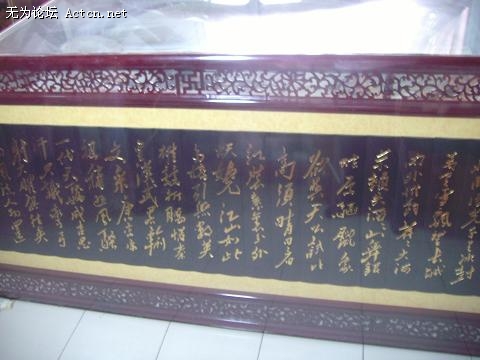 无为论坛 Actcn.net
里冰封
万里雪飘望长城
内外惟余莽莽大河
上下顿失滔滔山舞银
蛇原驰蜡象
欲与天公试比
高须晴日看
红装素裹分外
妖娆江山如此
多娇引无数英
雄竞折腰惜秦
皇汉武略输
文采唐宗宋
祖稍逊风骚
一代天骄成吉思
汗只识弯弓
射大雕俱往矣
风流人物还